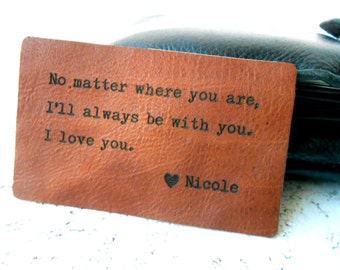 No matter where you are,
I'll always be with you.
I love you.
♥ Nicole